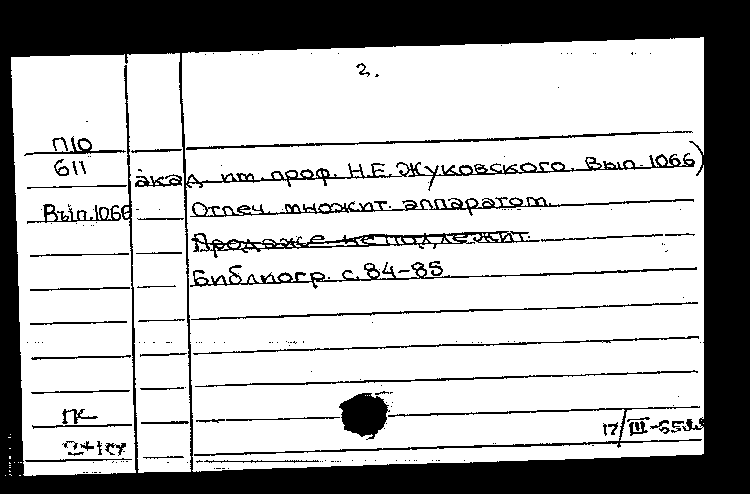 2.
П10
611
акад. им. проф. Н.Е. Жуковского. Вып. 1066)
Вып. 1066 Отпеч. множит. аппаратом.
Продаже не подлежит.
Библиогр. с. 84-85
17/III-65